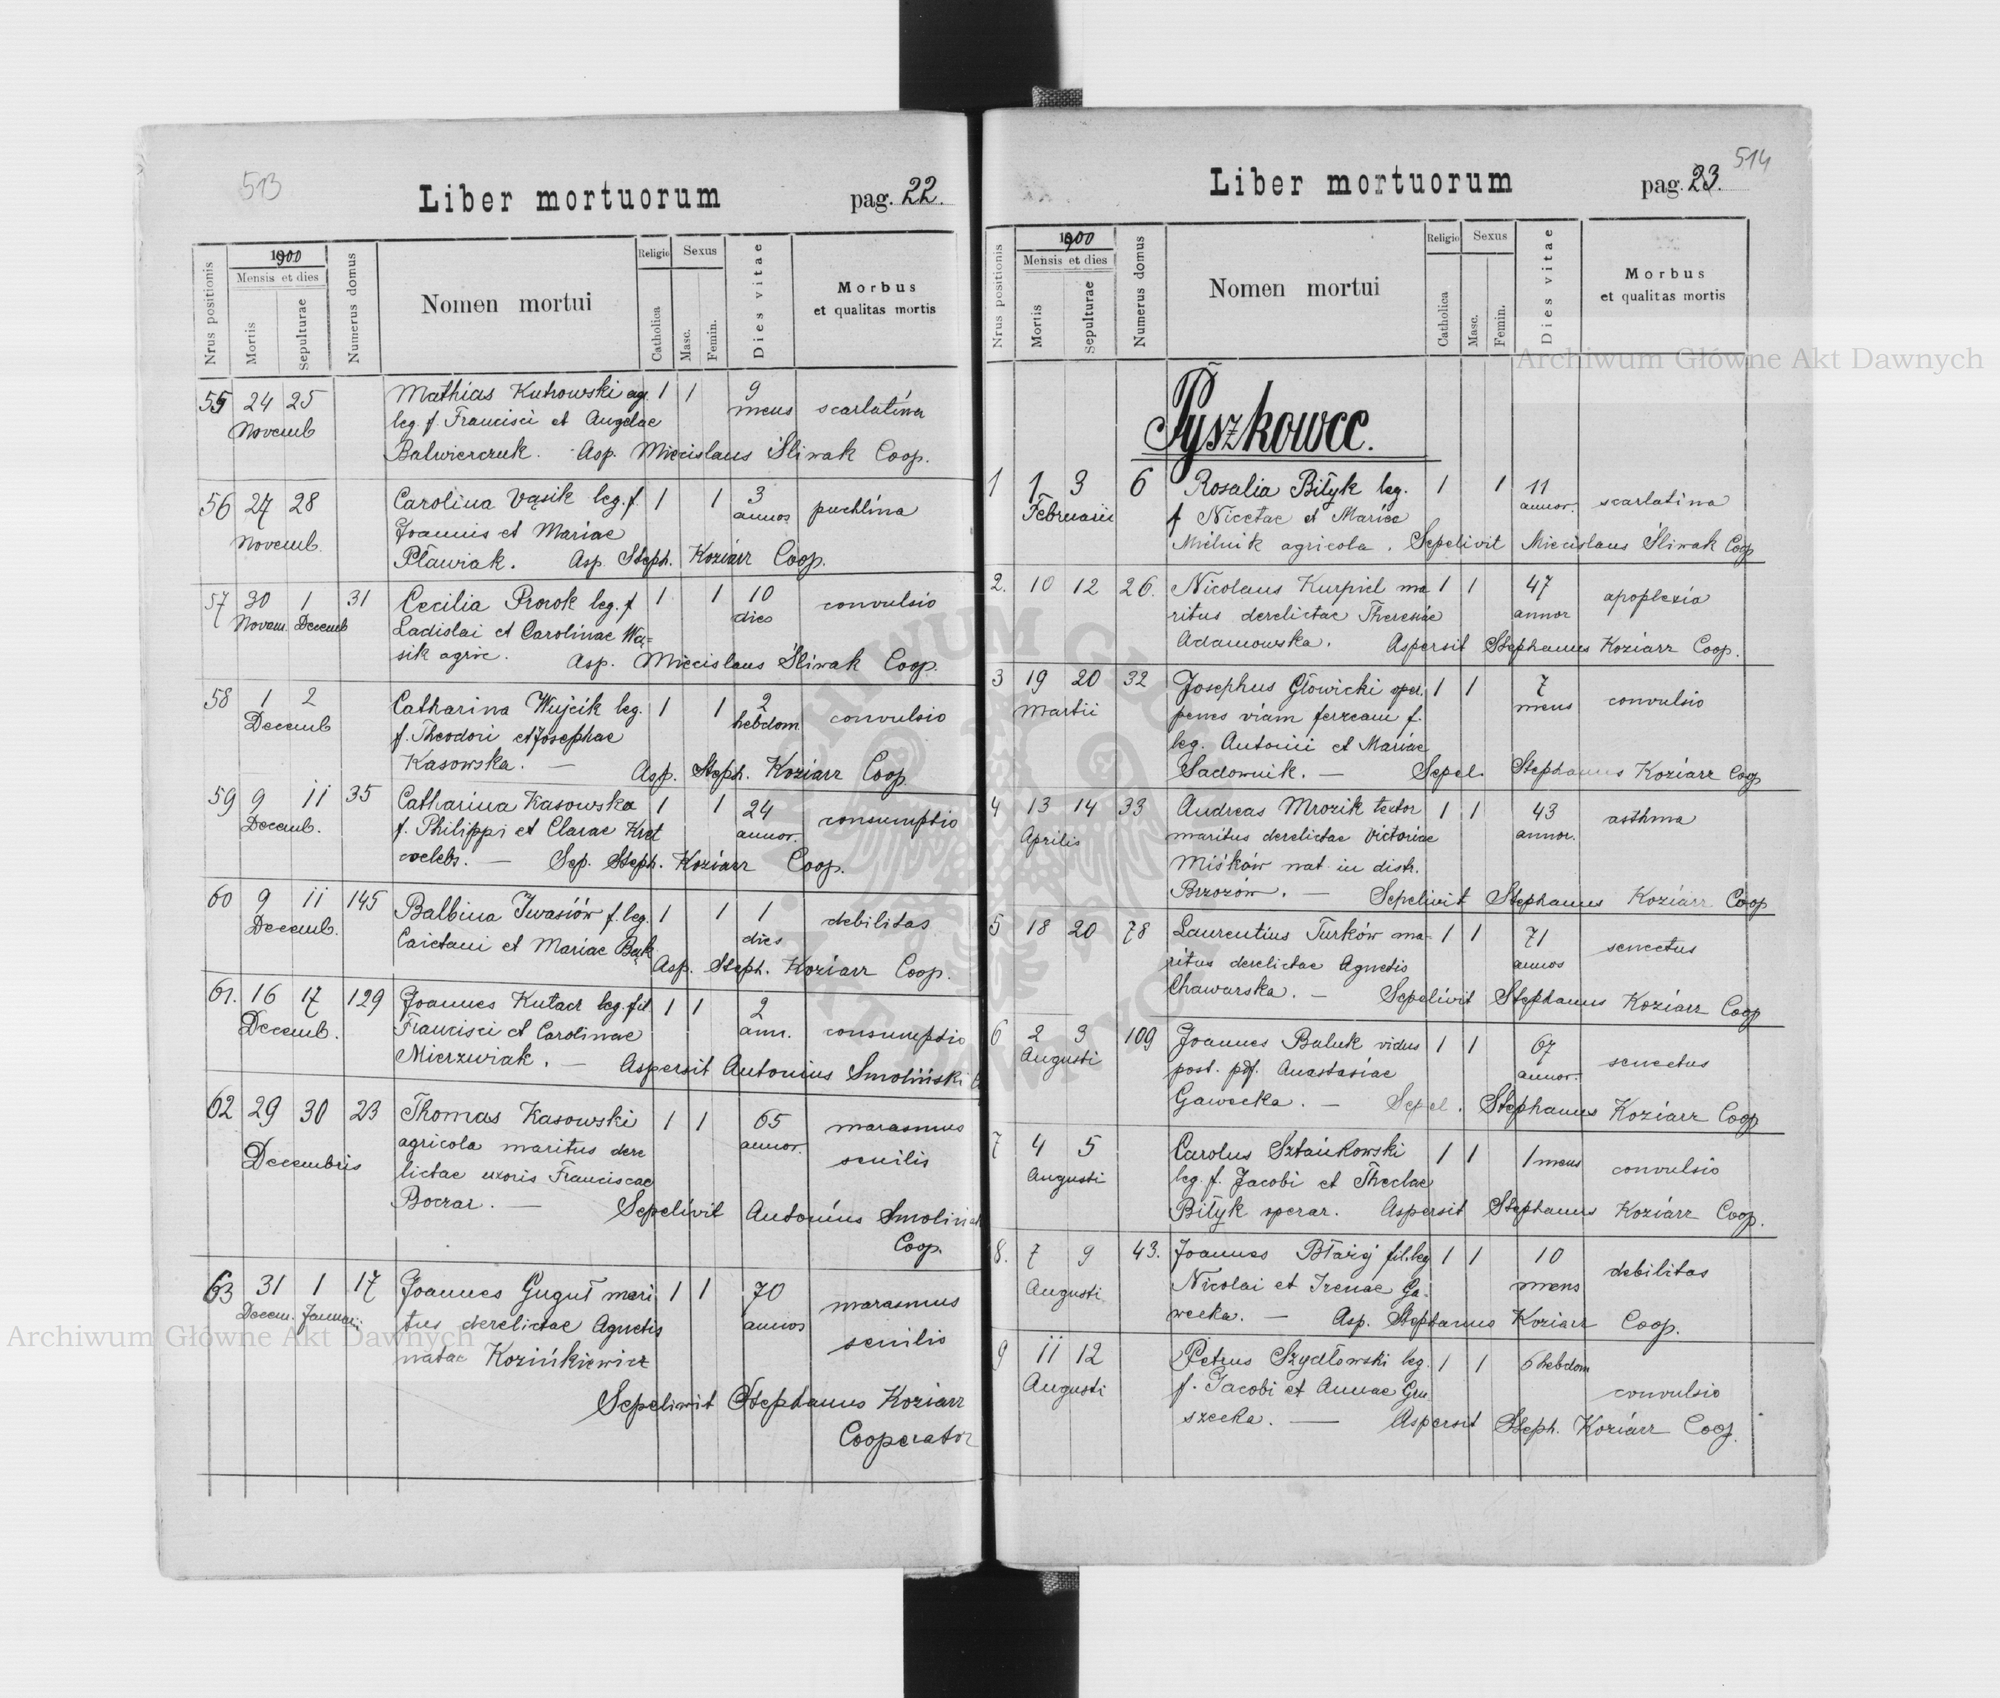 513
Liber mortuorum
pag. 22.
Nrus positionis
1900
Mensis et dies
Mortis
Sepulturae
Numerus domus
Nomen mortui
Religio
Catholica
Sexus
Masc.
Femin.
Dies vitae
Morbus
et qualitas mortis
55 24 25 Mathias Kutrowski ag. 1 1 9
Novemb leg. f. Francisci et Angelae mens scarlatina
Balwierczuk. Asp. Miecislaus Śliwak Coop.
56 27 28 Carolina Vąsik leg. f. 1 1 3
Novemb. Joannis et Mariae annos puchlina
Pławiak. Asp. Steph. Koziarz Coop.
57 30 1 31 Cecilia Prorok leg. f 1 1 10 convulsio
Novem. Decemb Ladislai et Carolinae Wą= dies
sik agric. Asp. Miecislaus Śliwak Coop.
58 1 2 Catharina Wujcik leg. 1 1 2
Decemb f. Theodori et Josephae hebdom. convulsio
Kasowska. — Asp. Steph. Koziarz Coop
59 9 11 35 Catharina Kasowska 1 1 24
Decemb. f. Philippi et Clarae Krat annor. consumptio
coelebs. — Sep. Steph. Koziarz Coop.
60 9 11 145 Balbina Iwasiów f. leg. 1 1 1 debilitas
Decemb. Caietani et Mariae Bąk dies
Asp. Steph. Koziarz Coop.
61. 16 17 129 Joannes Kutacz leg. fil 1 1 2
Decemb. Francisci et Carolinae ann. consumptio
Mierzwiak. — Aspersit Antonius Smoliński
62 29 30 23 Thomas Kasowski 1 1 65 marasmus
Decembris agricola maritus dere annor. senilis
lictae uxoris Franciscae
Boczar. — Sepelivit Antonius Smoliński
Coop.
63 31 1 17 Joannes Guguł mari 1 1 70 marasmus
Decem. Januarii tus derelictae Agnetis annos senilis
natae Kozińkiewicz
Sepelivit Stephanus Koziarz
Cooperator
514
Liber mortuorum
pag. 23.
Nrus positionis
1900
Mensis et dies
Mortis
Sepulturae
Numerus domus
Nomen mortui
Religio
Catholica
Sexus
Masc.
Femin.
Dies vitae
Morbus
et qualitas mortis
Pyszkowce.
1 1 3 6 Rosalia Biłyk leg. 1 1 11 scarlatina
Februarii f Nicetae et Mariae annor.
Milnik agricola. Sepelivit Miecislaus Śliwak Coop
2. 10 12 26. Nicolaus Kurpiel ma 1 1 47 apoplexia
ritus derelictae Theresiae annor
Adamowska. Aspersit Stephanus Koziarz Coop.
3 19 20 32 Josephus Głowicki oper. 1 1 7 convulsio
Martii penes viam ferream f. mens
leg. Antonii et Mariae
Sadownik. — Sepel. Stephanus Koziarz Coop
4 13 14 33 Andreas Mrozik textor 1 1 43 asthma
Aprilis maritus derelictae Victoriae annor.
Miśków nat. in distr.
Brzozów. — Sepelivit Stephanus Koziarz Coop
5 18 20 78 Laurentius Turków ma- 1 1 71 senectus
ritus derelictae Agnetis annos
Chawarska. — Sepelivit Stephanus Koziarz Coop
6 2 3 109 Joannes Baluk vidus 1 1 67 senectus
Augusti post. pdf. Anastasiae annor.
Gawecka. — Sepel. Stephanus Koziarz Coop
7 4 5 Carolus Sztańkowski 1 1 1 mens convulsio
Augusti leg. f. Jacobi et Theclae
Biłyk operar. Aspersit Stephanus Koziarz Coop.
8. 7 9 43. Joannes Błażij fil. leg 1 1 10 debilitas
Augusti Nicolai et Irenae Ga- mens
wecka. — Asp. Stephanus Koziarz Coop.
9 11 12 Petrus Szydłowski leg. 1 1 6 hebdom
Augusti f. Jacobi et Annae Gru convulsio
szecka. — Aspersit Steph. Koziarz Coop.
Archiwum Główne Akt Dawnych
Archiwum Główne Akt Dawnych